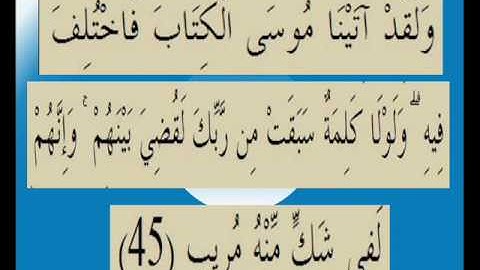 وَلَقَدْ آتَيْنَا مُوسَى الْكِتَابَ فَاخْتُلِفَ
فِيهِ ۗ وَلَوْلَا كَلِمَةٌ سَبَقَتْ مِن رَّبِّكَ لَقُضِيَ بَيْنَهُمْ ۚ وَإِنَّهُمْ
لَفِي شَكٍّ مِّنْهُ مُرِيبٍ (45)